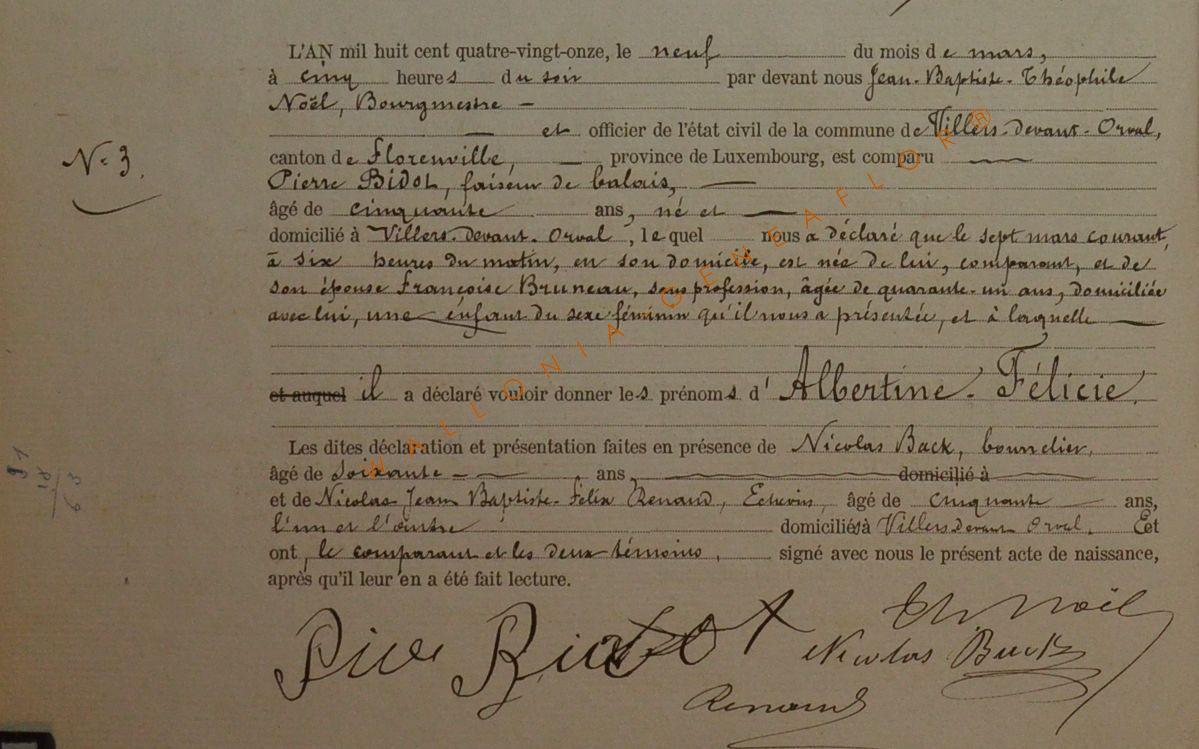 L'AN mil huit cent quatre-vingt-onze, le neuf du mois de mars,
à cinq heures du soir par devant nous Jean-Baptiste-Théophile
Noël, Bourgmestre —
— et officier de l'état civil de la commune de Villers-devant-Orval,
N° 3.
canton de Florenville, — province de Luxembourg, est comparu —
Pierre Bidot, faiseur de balais, —
âgé de cinquante ans, né et —
domicilié à Villers-devant-Orval, lequel nous a déclaré que le sept mars courant,
à six heures du matin, en son domicile, est née de lui, comparant, et de
son épouse Françoise Bruneau, sans profession, âgée de quarante-un ans, domiciliée
avec lui, une enfant du sexe féminin qu'il nous a présentée, et à laquelle —
et auquel il a déclaré vouloir donner les prénoms d'Albertine-Félicie.
Les dites déclaration et présentation faites en présence de Nicolas Back, bourrelier,
âgé de soixante — ans domicilié à
et de Nicolas Jean Baptiste-Félix Renaud, Echevin, âgé de cinquante ans,
l'un et l'autre domiciliés à Villers-devant-Orval. Et
ont, le comparant et les deux témoins, signé avec nous le présent acte de naissance,
après qu'il leur en a été fait lecture.
Th Noël
Nicolas Back
Renaud
WALLONIA GENEAFLOR®
91
18
63